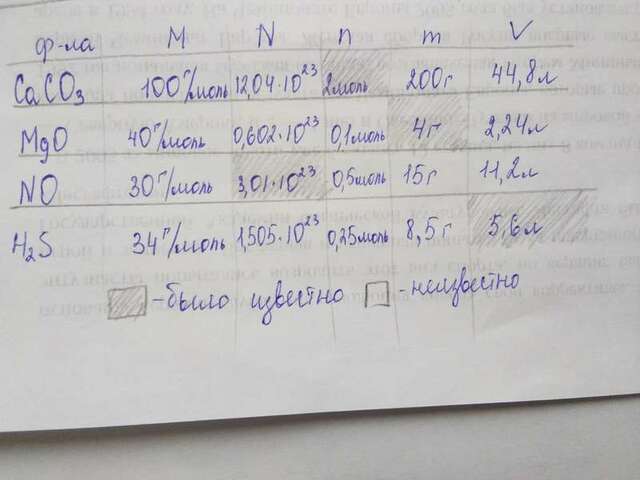 ф-ла M N n m V
CaCO₃ 100 г/моль 12,04·10²³ 2моль 200г 44,8л
MgO 40 г/моль 0,602·10²³ 0,1моль 4г 2,24л
NO 30 г/моль 3,01·10²³ 0,5моль 15г 11,2л
H₂S 34 г/моль 1,505·10²³ 0,25моль 8,5г 5,6л
-было известно -неизвестно